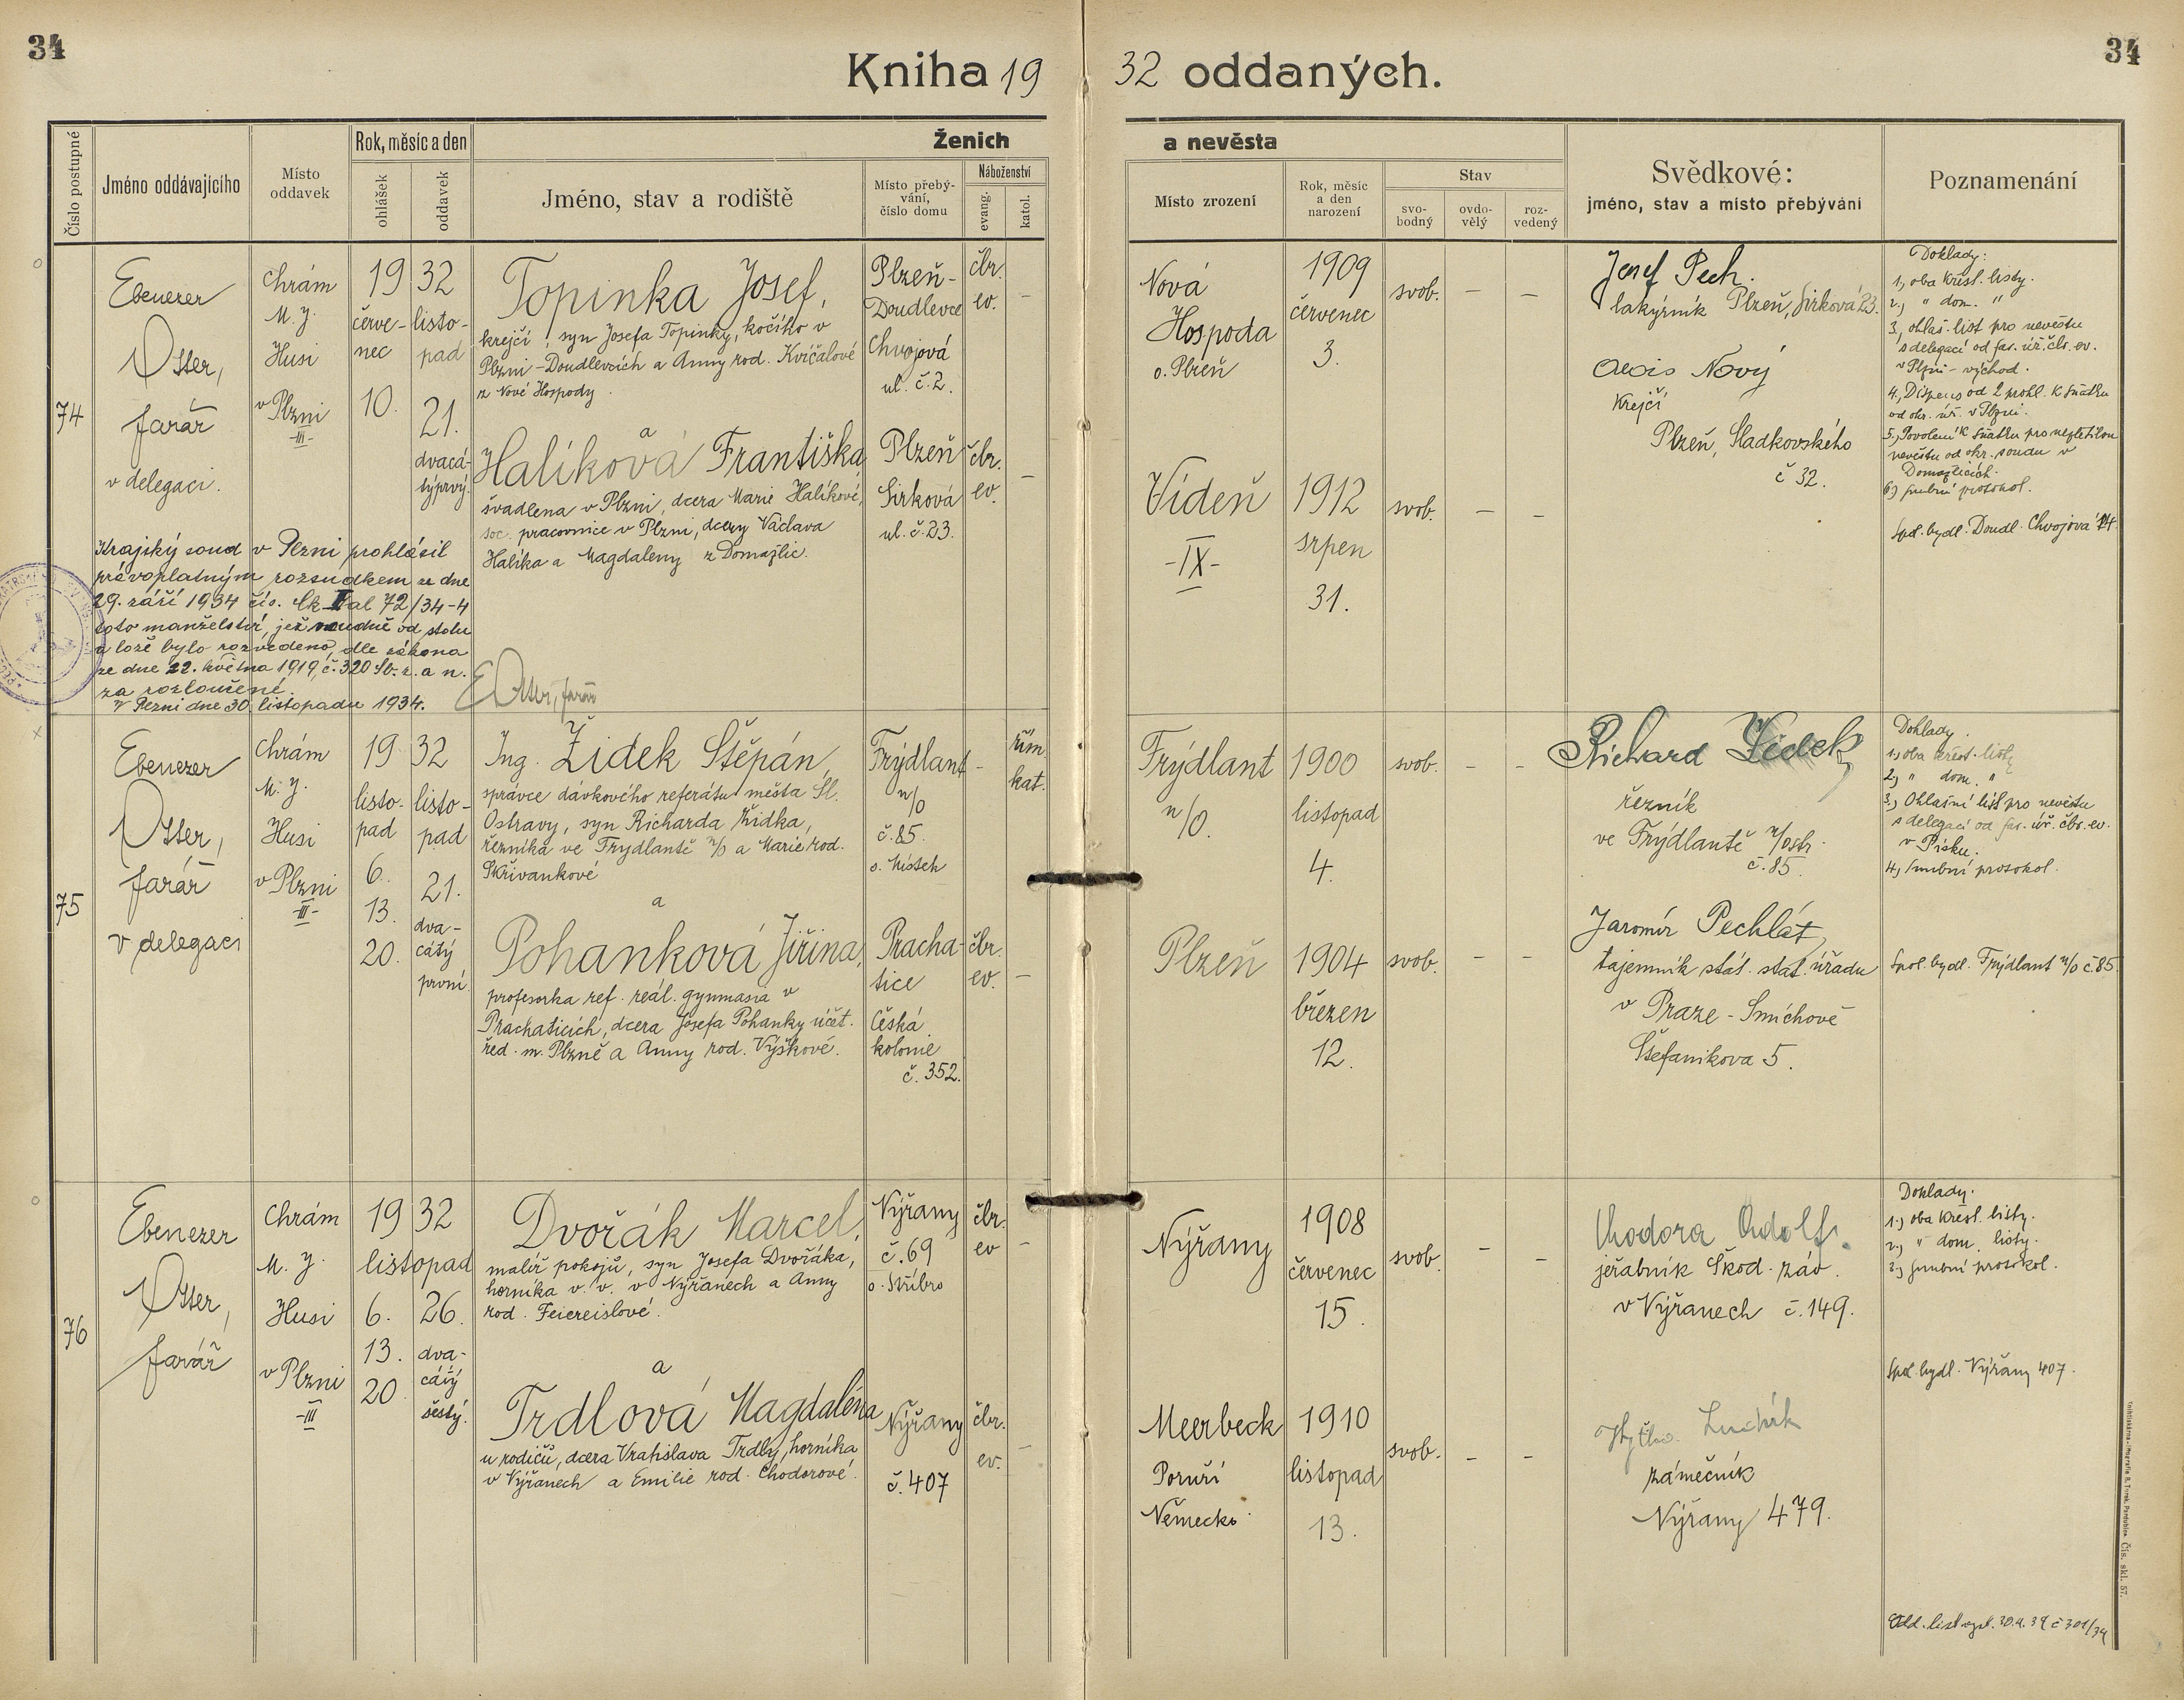 34
Kniha 19 32 oddaných.
34
Číslo postupné
Jméno oddávajícího
Místo oddavek
Rok, měsíc a den
ohlášek
oddavek
Ženich
Jméno, stav a rodiště
Místo přebý-
vání,
číslo domu
Náboženství
evang.
katol.
a nevěsta
Místo zrození
Rok, měsíc
a den
narození
Stav
svo-
bodný
ovdo-
vělý
roz-
vedený
Svědkové:
jméno, stav a místo přebývání
Poznamenání
74
Ebenezer
Otter,
farář
v delegaci.
Chrám
M. J.
Husi
v Plzni
-III-
19 32
červe-
nec
10.
listo-
pad
21.
dvacá-
týprvý.
Topinka Josef,
krejčí, syn Josefa Topinky, kočího v
Plzni-Doudlevcích a Anny rod. Kvíčalové
z Nové Hospody.
a
Halíková Františka
švadlena v Plzni, dcera Marie Halíkové,
soc. pracovnice v Plzni, dcery Václava
Halíka a Magdaleny z Domažlic.
Plzeň-
Doudlevce
Chvojová
ul. č. 2.
Plzeň
Sirková
ul. č. 23.
čbr.
ev.
–
čbr.
ev.
–
Nová
Hospoda
o. Plzeň
1909
červenec
3.
svob. – –
Vídeň
-IX-
1912
srpen
31.
svob. – –
Josef Pech.
lakýrník Plzeň, Sirková 23.
Alois Nový
krejčí
Plzeň, Sladkovského
č 32.
Doklady:
1, oba křest. listy.
2, " dom. "
3, ohláš. list pro nevěstu
s delegací od far. úř. čbr. ev.
v Plzni - východ.
4, Dispens od 2 prohl. k sňatku
od okr. úř. v Plzni.
5, Povolení k sňatku pro nezletilou
nevěstu od okr. soudu v
Domažlicích.
6, snubní protokol.
Spol. bydl. Doudl. Chvojová 14.
Krajský soud v Plzni prohlásil
právoplatným rozsudkem ze dne
29. září 1934 čís. Ck II al 72/34-4
toto manželství, jež soudně od stolu
a lože bylo rozvedeno, dle zákona
ze dne 22. května 1919, č. 320 Sb. z. a n.
za rozloučené.
V Plzni dne 30. listopadu 1934.
E Otter, farář
75
Ebenezer
Otter,
farář
v delegaci
Chrám
M. J.
Husi
v Plzni
-III-
19 32
listo-
pad
6.
13.
20.
listo-
pad
21.
dva-
cátý
první.
Ing. Židek Štěpán,
správce dávkového referátu města Sl.
Ostravy, syn Richarda Židka,
řezníka ve Frýdlantě n/O a Marie rod.
Skřivankové
a
Pohanková Jiřina,
profesorka ref. reál. gymnasia v
Prachaticích, dcera Josefa Pohanky účet.
řed. m. Plzně a Anny rod. Výškové.
Frýdlant
n/O
č. 85.
o. Místek
Pracha-
tice
Česká
kolonie
č. 352.
–
řím.
kat.
čbr.
ev.
–
Frýdlant
n/O.
1900
listopad
4.
svob. – –
Plzeň
1904
březen
12.
svob. – –
Richard Židek
řezník
ve Frýdlantě n/Ostr.
č. 85.
Jaromír Pechlát,
tajemník stát. stat. úřadu
v Praze - Smíchově
Štefanikova 5.
Doklady.
1, oba křest. listy
2, " dom. "
3, Ohlašní list pro nevěstu
s delegací od far. úř. čbr. ev.
v Písku.
4, snubní protokol.
Spol. bydl. Frýdlant n/O č 85.
76
Ebenezer
Otter,
farář
Chrám
M. J.
Husi
v Plzni
-III
19 32
listopad
6.
13.
20.
26.
dva-
cátý
šestý.
Dvořák Marcel,
malíř pokojů, syn Josefa Dvořáka,
horníka v. v. v Nýřanech a Anny
rod. Feiereislové.
a
Trdlová Magdaléna
u rodičů, dcera Vratislava Trdly, horníka
v Nýřanech a Emilie rod. Chodorové.
Nýřany
č. 69
o. Stříbro
Nýřany
č. 407
čbr.
ev
–
čbr.
ev.
–
Nýřany
1908
červenec
15.
svob. – –
Meerbeck
Poruří
Německo
1910
listopad
13.
svob. – –
Chodora Adolf.
jeřabník Škod. záv.
v Nýřanech č. 149.
zámečník
Nýřany 479.
Doklady.
1, oba křest. listy.
2, " dom. listy.
3, snubní protokol.
Spol. bydl. Nýřany 407.
Odd. list vyd. 30.4.39 č 301/39
Čís. skl. 57.